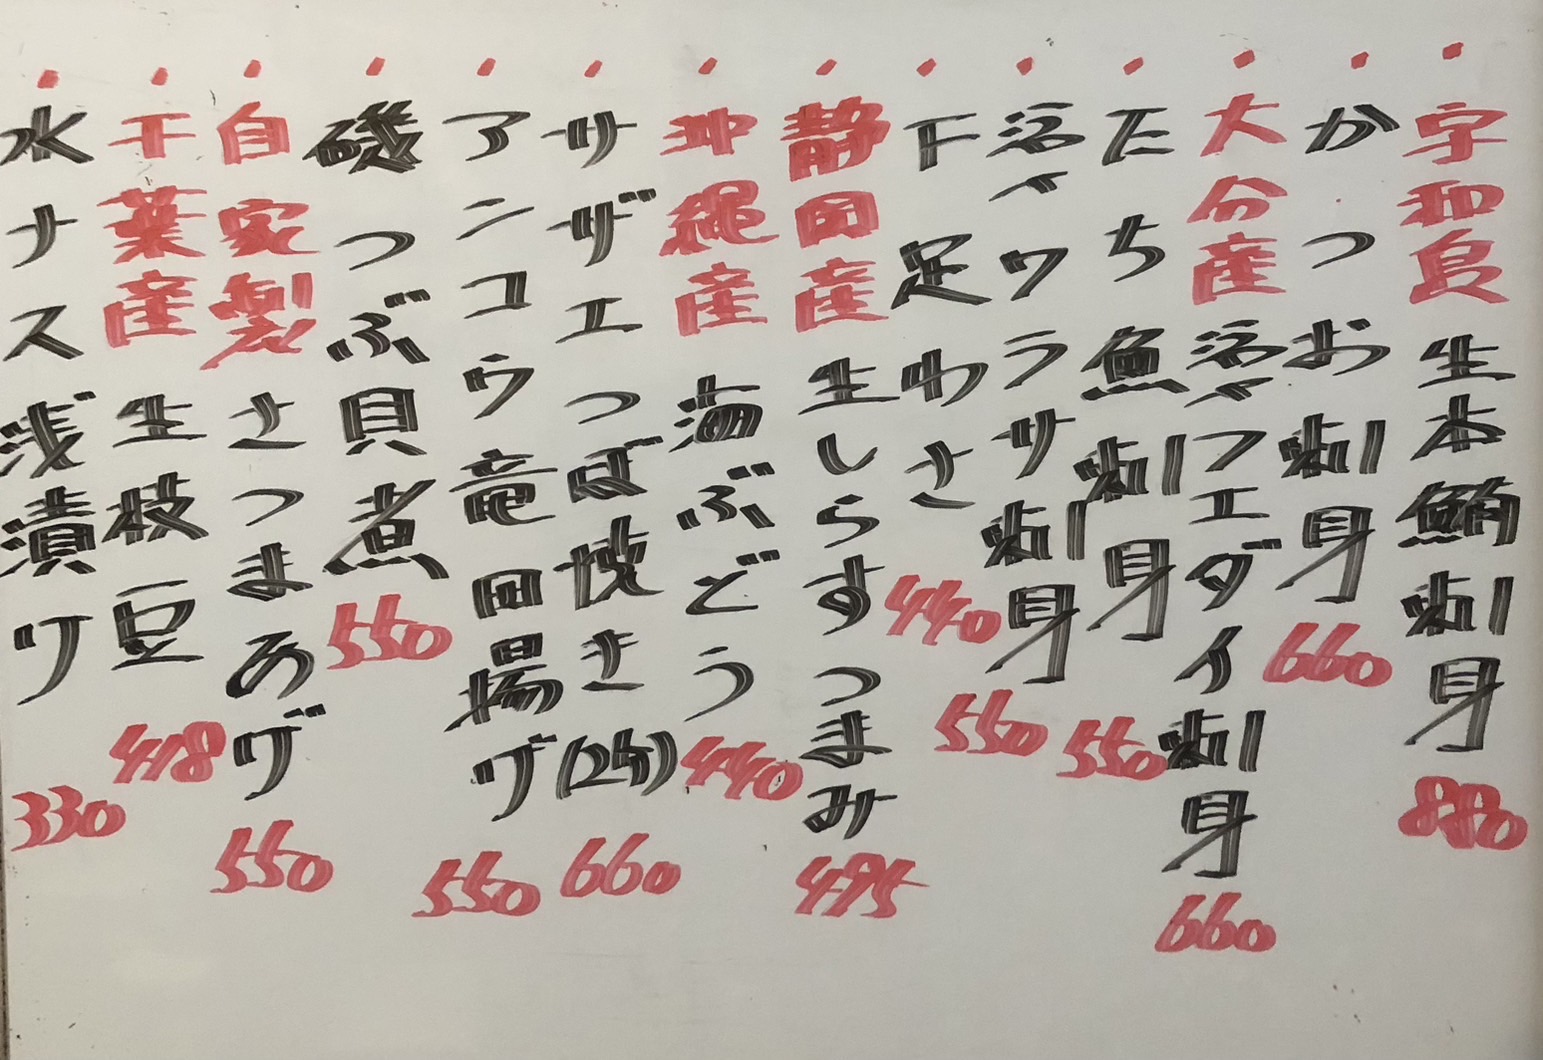 ・宇和島 生本鮪刺身 880
・かつお刺身 660
・大分産 活〆フエダイ刺身 660
・たち魚刺身 550
・活〆ワラサ刺身 550
・下足わさ 440
・静岡産 生しらすつまみ 495
・沖縄産 海ぶどう 440
・サザエつぼ焼き(2ケ) 660
・アンコウ竜田揚げ 550
・磯つぶ貝煮 550
・自家製 さつまあげ 550
・千葉産 生枝豆 418
・水ナス浅漬け 330